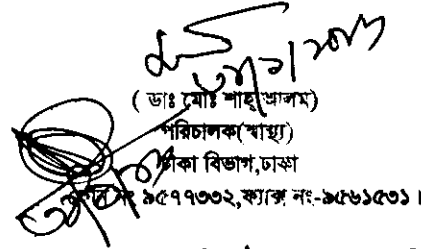 ( ডাঃ মোঃ শাহ্ আলম)
পরিচালক(স্বাস্থ্য)
ঢাকা বিভাগ,ঢাকা
ফোন নং ৯৫৭৭৩৩২,ফ্যাক্স নং-৯৫৬১৫৩১।